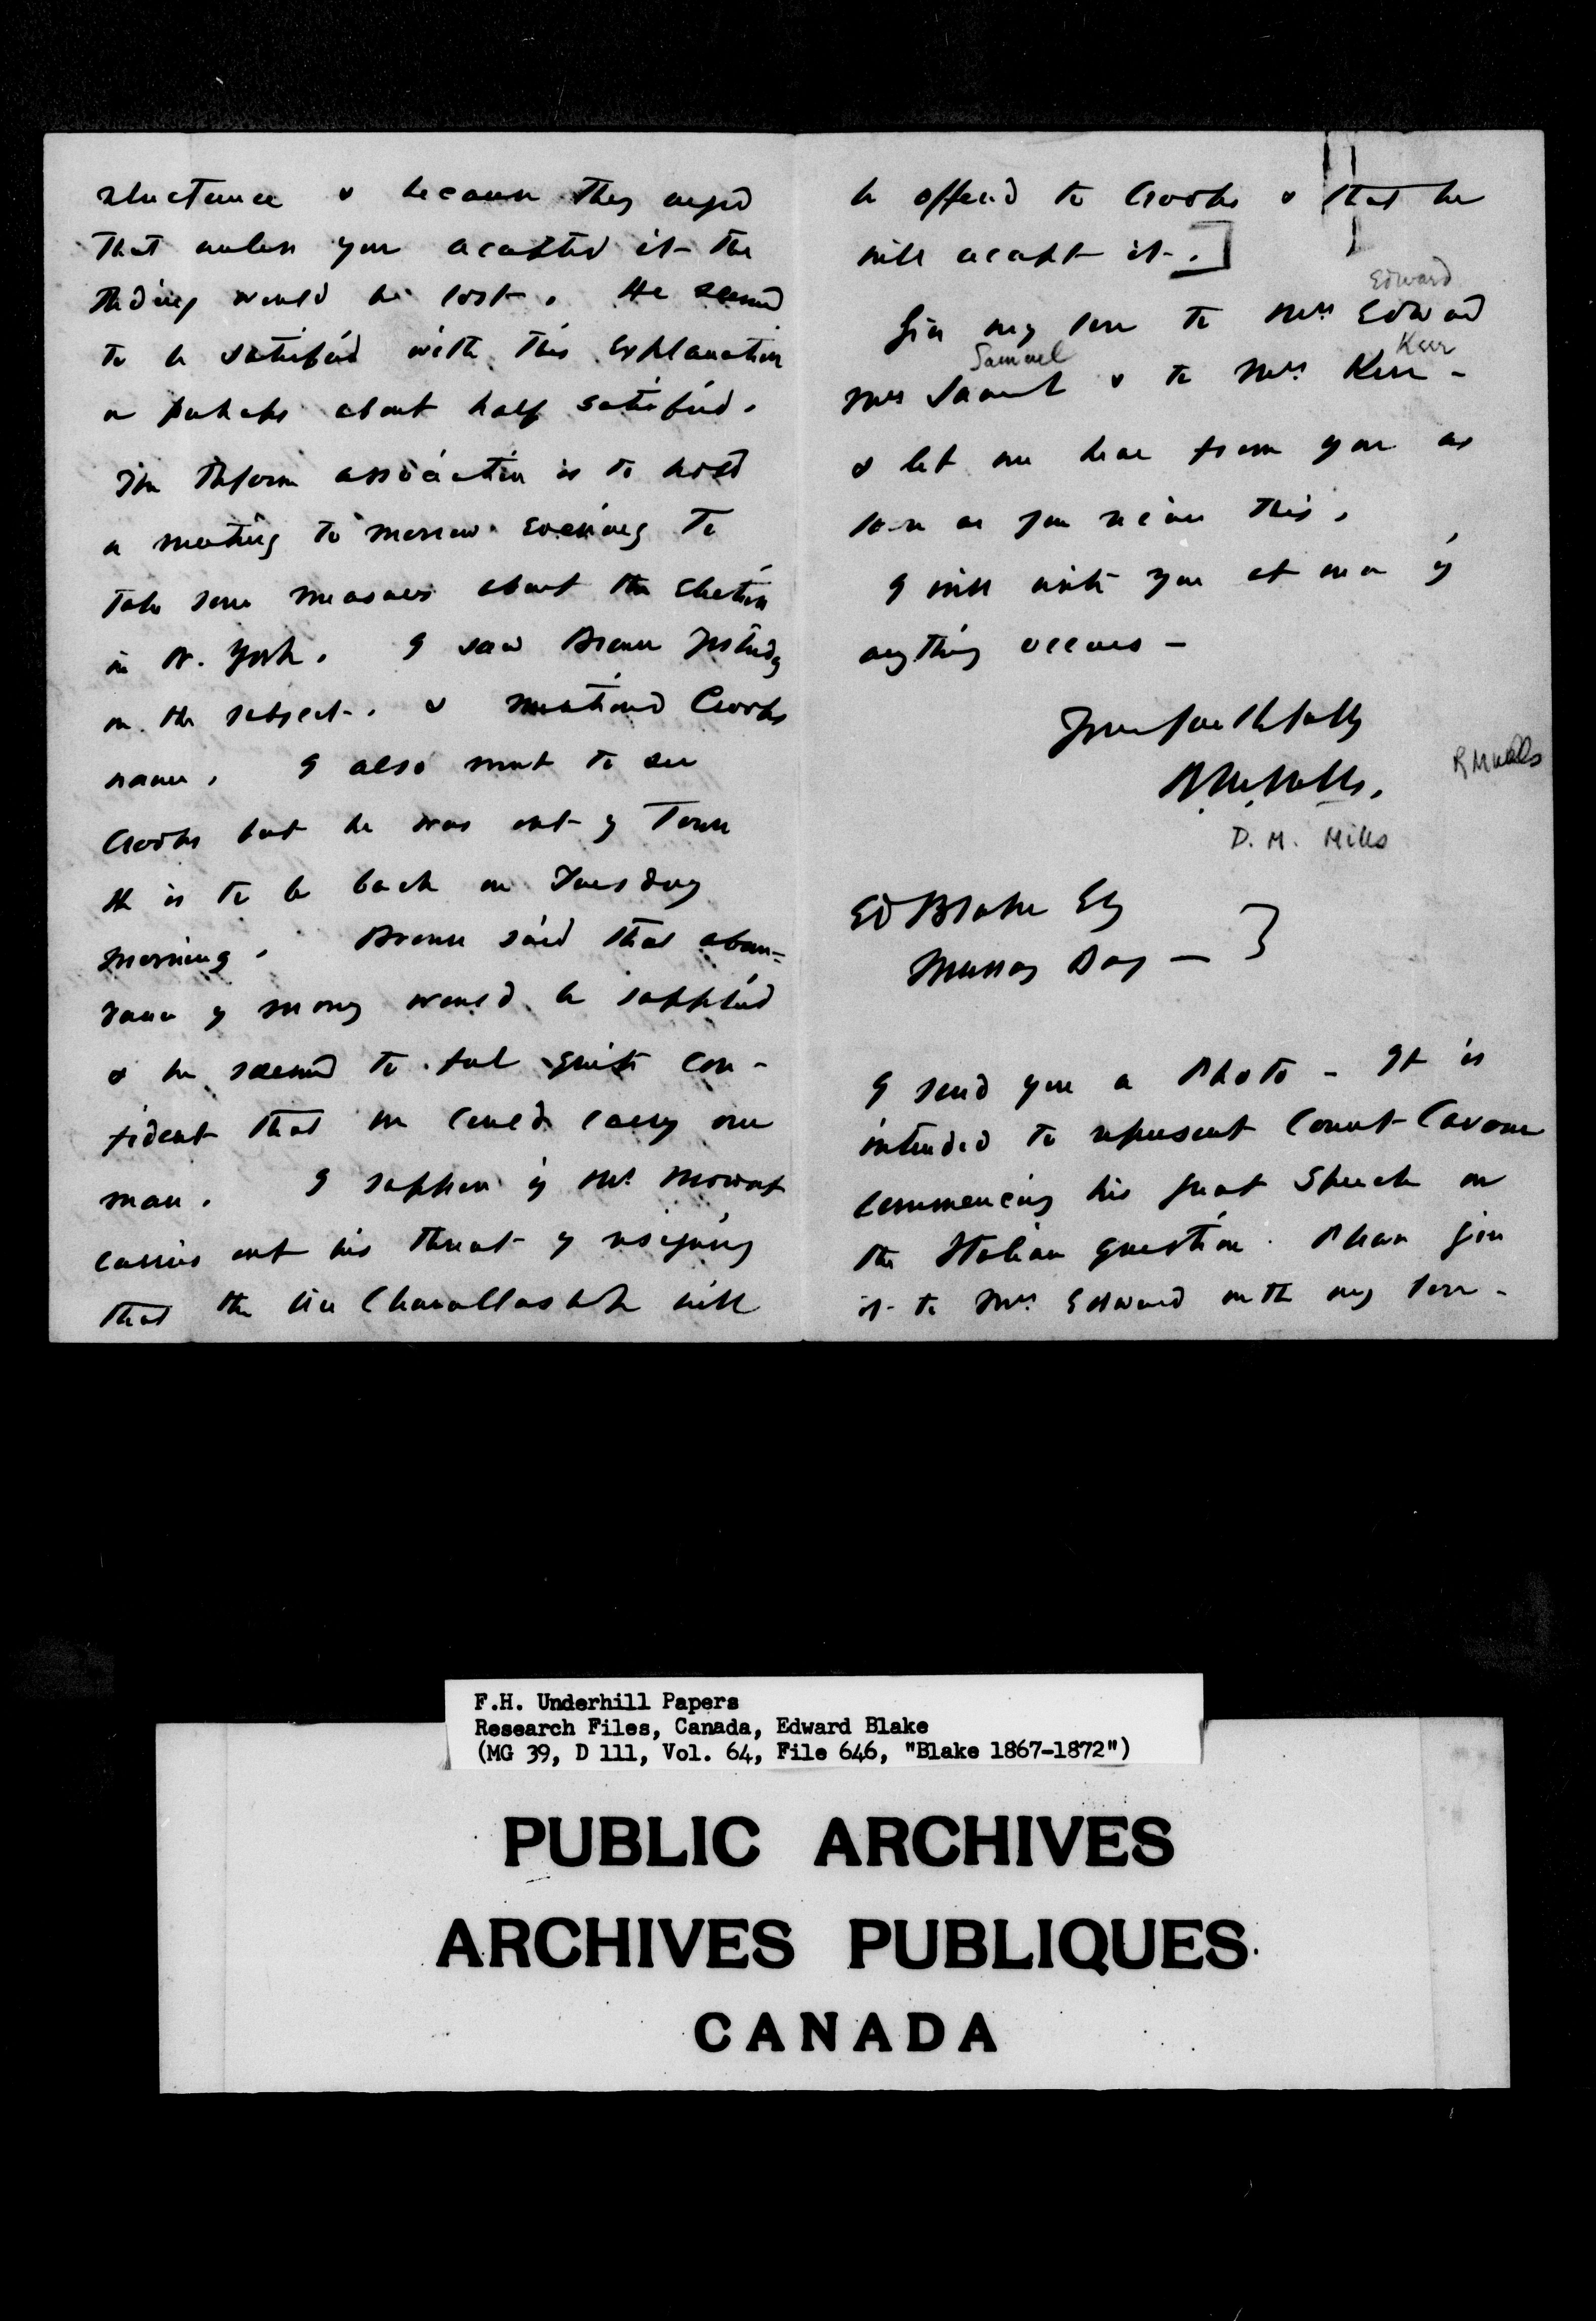 reluctance & because they urged
that unless you accepted it the
Riding would be lost. He seemed
to be satisfied with this explanation
or perhaps about half satisfied.
The Reform association is to hold
a meeting to morrow evening to
take some measures about the Election
in W. York. I saw Brown yesterday
on the subject. & mentioned Crooks
name. I also went to see
Crooks but he was out of Town
He is to be back on Tuesday
morning. Brown said that abun=
dance of money would be supplied
& he seemed to feel quite con-
fident that we could carry our
man. I suppose if Mr. Mowat
carries out his threat of resigning
that the Vice Chancellorship will
be offered to Crooks & that he
will accept it.]
Edward
Give my love to Mrs Edward
Samuel Kerr
Mrs Samuel & to Mrs. Kerr -
& let me hear from you as
soon as you receive this.
I will write you at once if
anything occurs -
Yours faithfully
D. M. Mills
Ed Blake Esq }
Murray Bay —
I send you a Photo - It is
intended to represent Count Cavour
commencing his great Speech on
the Italian question. Please give
it to Mrs. Edward with my love -
F.H. Underhill Papers
Research Files, Canada, Edward Blake
(MG 39, D 111, Vol. 64, File 646, "Blake 1867-1872")
PUBLIC ARCHIVES
ARCHIVES PUBLIQUES
CANADA